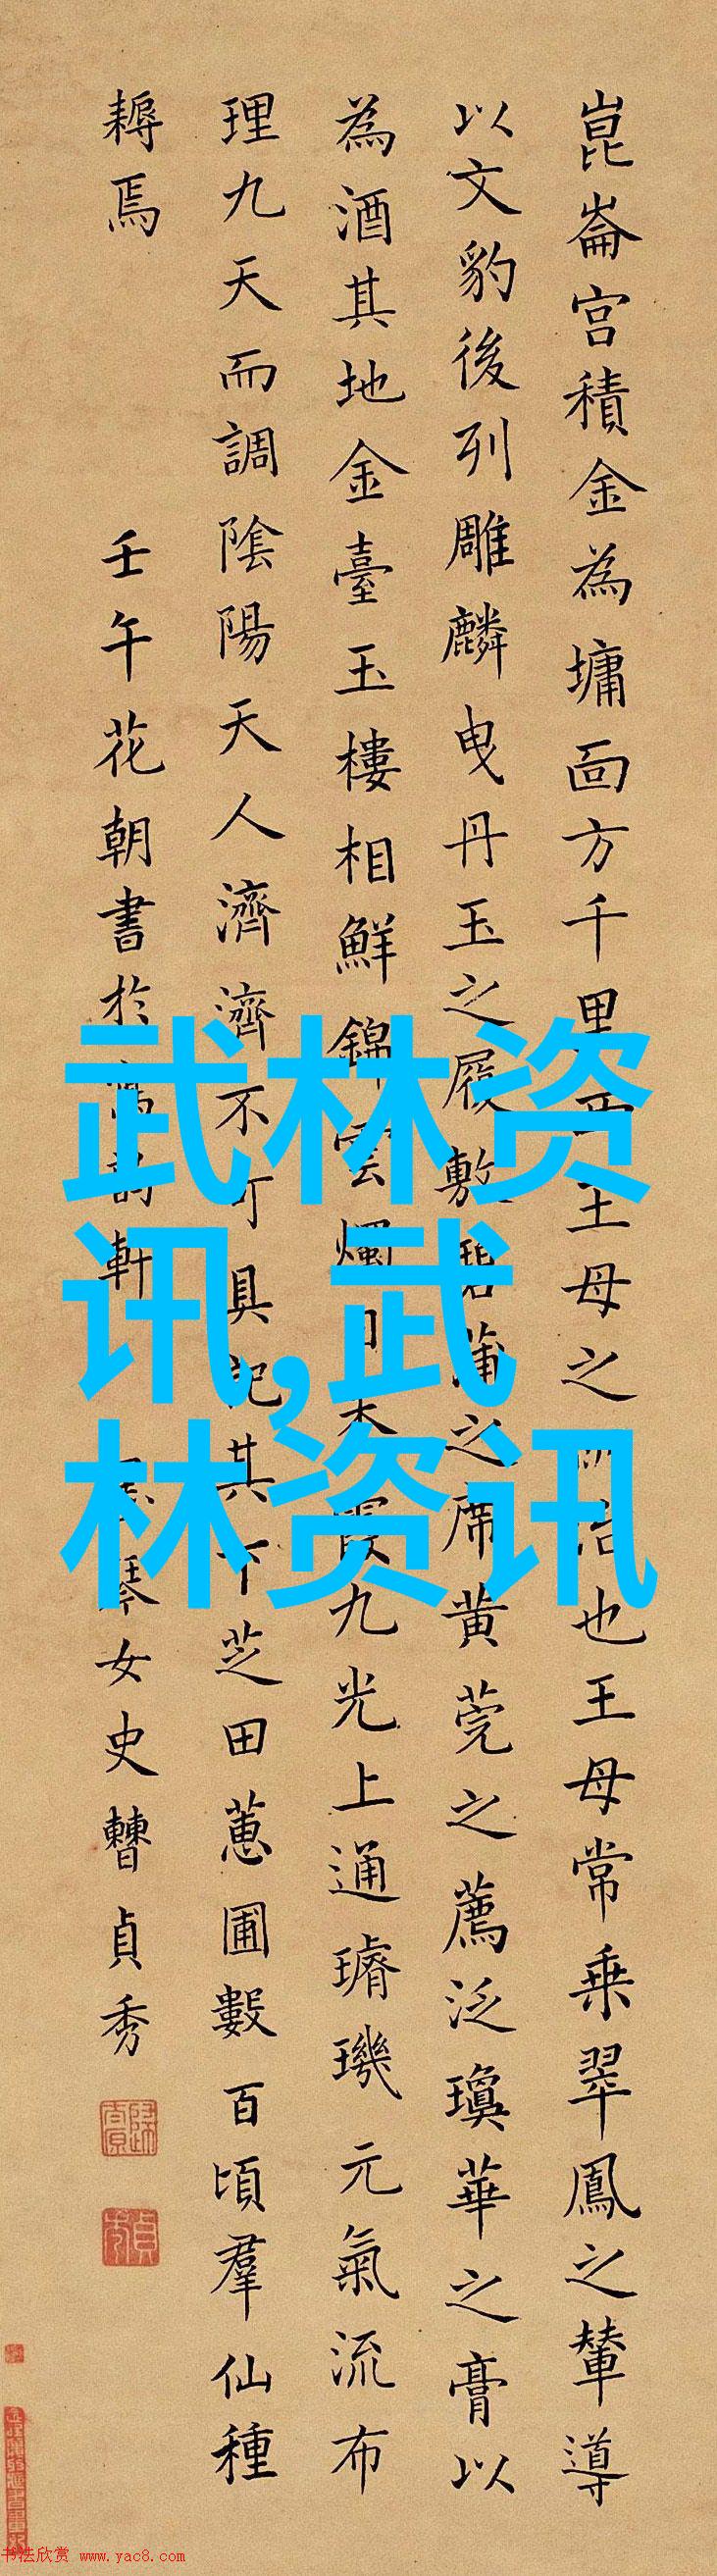 崑崙宮積金為墉面方千里西王母之所治也王母常乗翠鳳之輦導
以文豹後列雕麟曳丹玉之履敷碧蒲之席黄莞之薦泛瓊華之膏以
為酒其地金臺玉樓相鮮錦雲燭日朱霞九光上通璿璣元氣流布
理九天而調陰陽天人濟濟不可具記其下芝田蕙圃數百頃羣仙種
耨焉
壬午花朝書於寫韵軒
琴女史曹貞秀
武林资
讯,武
林资讯
书法欣赏 www.yac8.com